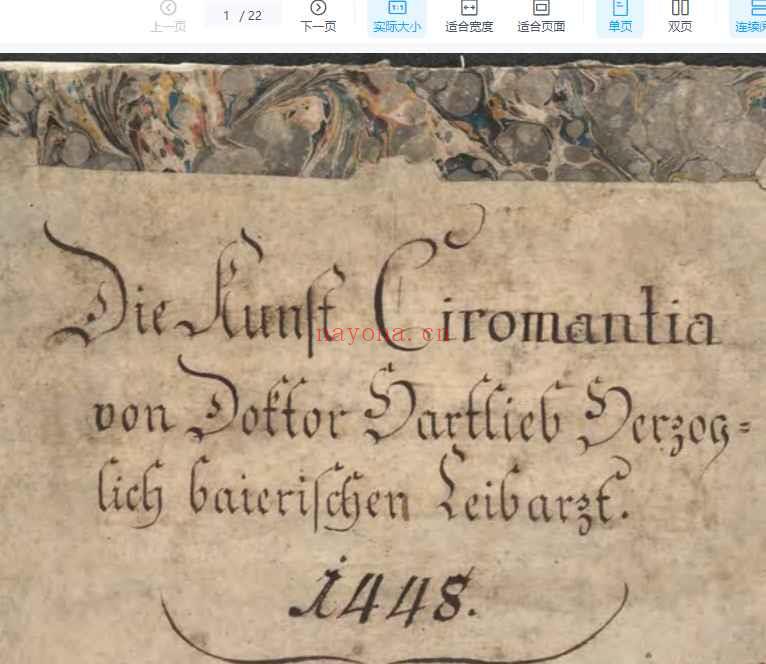 上一页
1 / 22
下一页
实际大小
适合宽度
适合页面
单页
双页
连续阅
Die Kunst Ciromantia
nayona.cn
von Doktor Hartlieb Herzog=
lich baierischen Leibarzt.
1448.